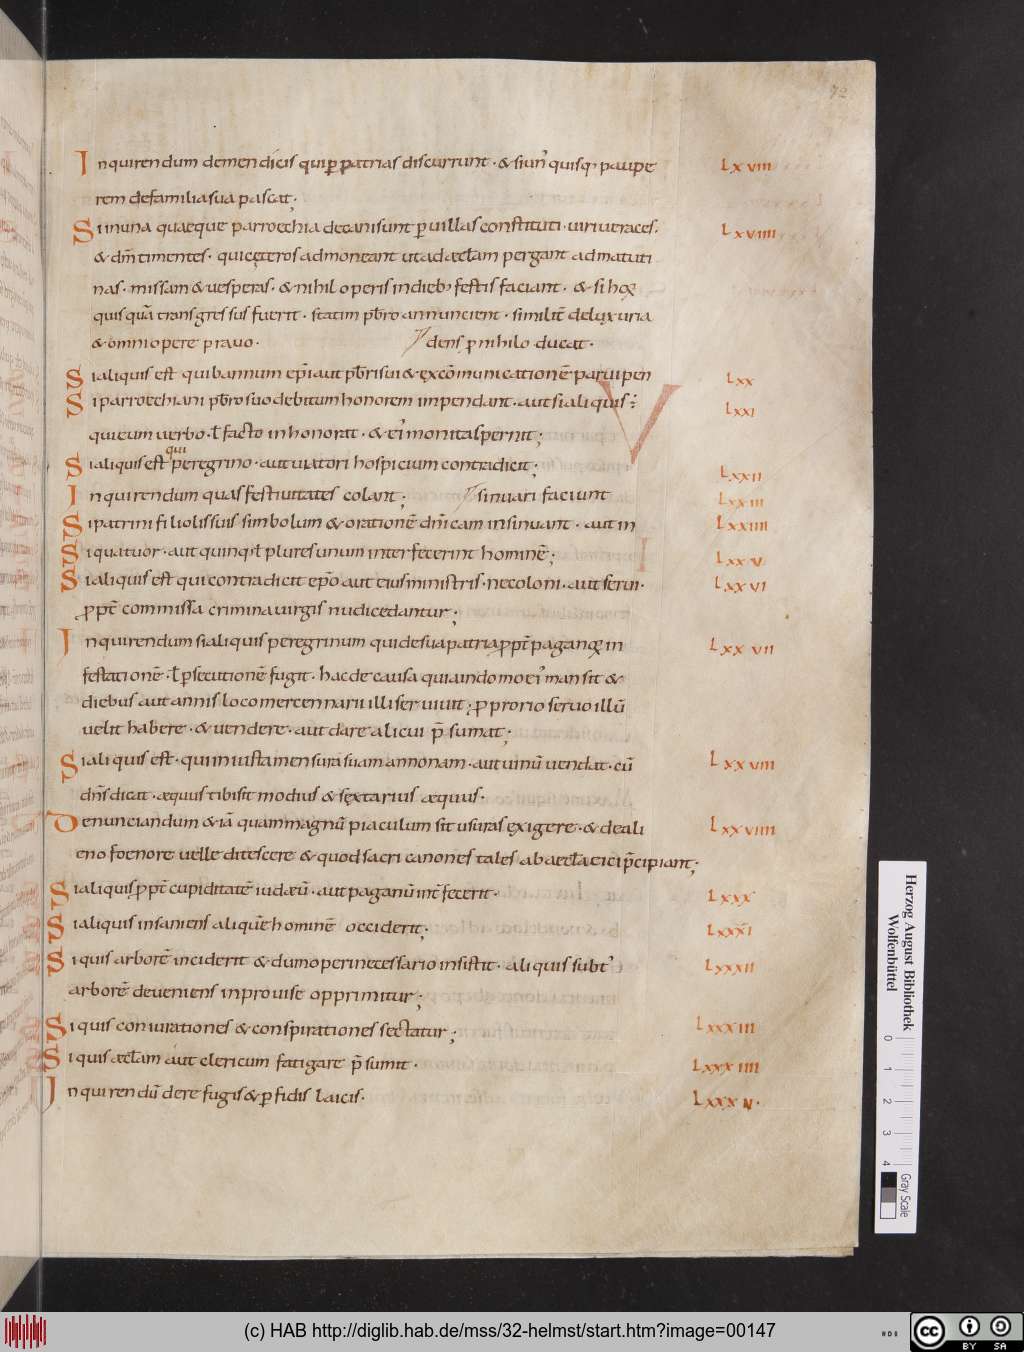 72
In quirendum demendicis qui ꝑ patrias discurrunt · & siun̄ quisq; paupe LxVIII
rem defamilia sua pascat;
Si in una quaeque parroechia decani sunt ꝑ uillas constituti · uiri ueraces · LxVIIII
& dm̄ timentes · qui cęteros admoneant ut ad æcl̄am pergant ad matuti
nas · missam & uesperas · & nihil operis in dieb; festis faciant · & si hoꝝ
quisquā transgressus fuerit · statim pb̄ro annuncient · similit̄ de luxuria
& omni opere prauo · dens ꝓ nihilo ducat ·
Si aliquis est qui bannum ep̄i aut pb̄ri sui & excōmunicationē parui pen Lxx
Si parroechiani pb̄ro suo debitum honorem impendant · aut si aliquis Lxxi
qui eum uerbo · ł facto inhonorat · & ei' monita spernit;
Si aliquis est qui peregrino · aut uiatori hospicium contradicit; Lxxii
In quirendum quas festiuitates colant; sinuari faciunt Lxxiii
Si patrini filiolis suis simbolum & orationē dn̄icam insinuant · aut in Lxxiiii
Si quatuor · aut quinq; ł plures unum interfecerint hominē; Lxxv
Si aliquis est qui contradicit ep̄o aut eius ministris · ne coloni · aut serui · Lxxvi
ꝓpt̄ commissa crimina uirgis nudi cedantur;
In quirendum si aliquis peregrinum qui de sua patria ꝓpt̄ paganoꝝ in Lxxvii
festationē · ł ꝑsecutionē fugit · hac de causa quia in domo ei' mansit &
diebus aut annis loco mercennarii illi seruiuit; ꝓ proprio seruo illū
uelit habere · & uendere · aut dare alicui p̄sumat;
Si aliquis est · qui iniusta mensura suam annonam · aut uinū uendat · cū Lxxviii
dn̄s dicat · æquus tibi sit modius & sextarius æquus ·
Denunciandum & iā quam magnū piaculum sit usuras exigere · & de ali Lxxviiii
eno foenore uelle ditescere & quod sacri canones tales ab aecl̄a eici p̄cipiant;
Si aliquis ꝓpt̄ cupiditatē iudæū · aut paganū int̄fecerit · Lxxx
Si aliquis insaniens aliquē hominē occiderit; Lxxxi
Si quis arborē inciderit & dum operi necessario insistit · aliquis subt' Lxxxii
arborē deueniens inprouise opprimitur;
Si quis coniurationes & conspirationes sectatur; Lxxxiii
Si quis æcl̄am aut clericum fatigare p̄sumit · Lxxxiiii
In quirendū de refugis & ꝑfidis laicis · Lxxxv ·
Herzog August Bibliothek
Wolfenbüttel
0 1 2 3 4
Gray Scale
(c) HAB http://diglib.hab.de/mss/32-helmst/start.htm?image=00147
cc BY SA